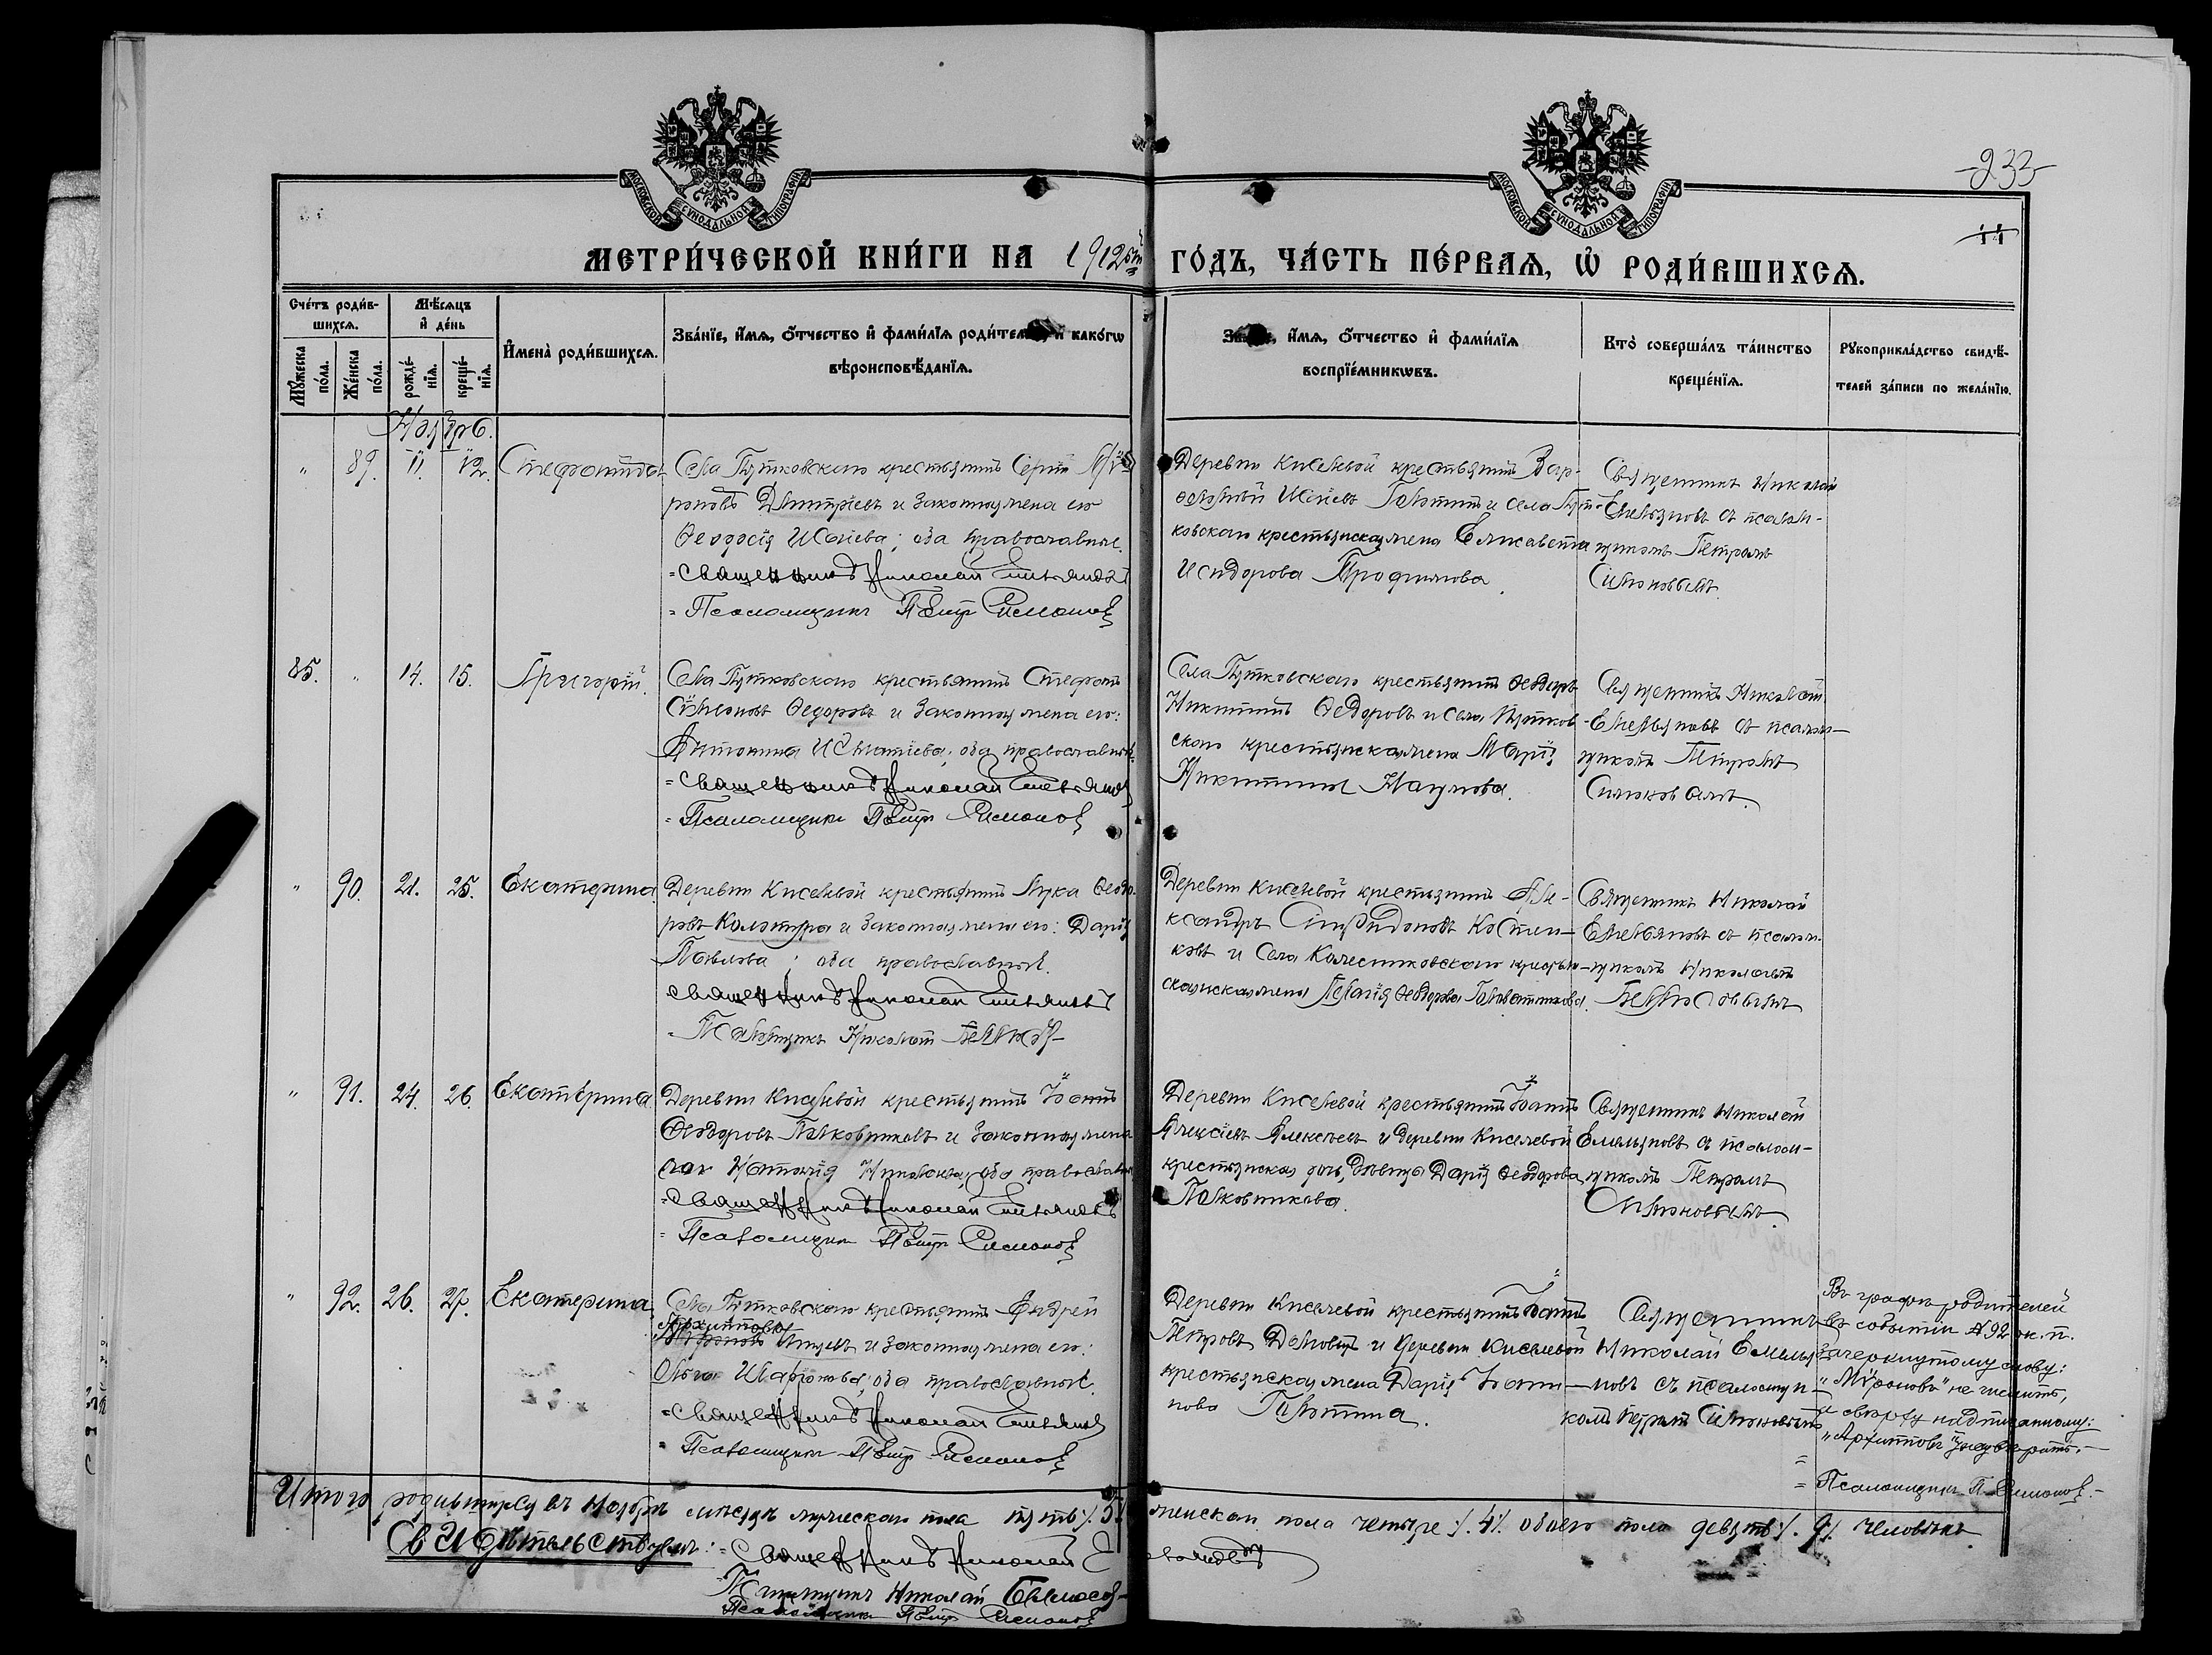 233
11
МОСКОВСКОЙ СУНОДАЛЬНОЙ ТИПОГРАФІИ
МОСКОВСКОЙ СУНОДАЛЬНОЙ ТИПОГРАФІИ
МЕТРИ́ЧЕСКОЙ КНИ́ГИ НА 1912ый ГО́ДЪ, ЧА́СТЬ ПЕ́РВАѦ, Ѡ РОДИ́ВШИХСѦ.
Сче́тъ роди́вшихсѧ.
Мѹ́жеска по́ла.
Же́нска по́ла.
Мѣ́сѧцъ и де́нь
рожде́нїѧ.
креще́нїѧ.
Имена̀ роди́вшихсѧ.
Зва́нїе, и́мѧ, о́тчество и фами́лїѧ роди́телей, и како́гѡ
вѣроисповѣ́данїѧ.
Зва́нїе, и́мѧ, о́тчество и фами́лїѧ
воспрїе́мникѡвъ.
Кто̀ соверша́лъ та́инство
креще́нїѧ.
Рѹкоприкла́дство свидѣ́-
телей за́писи по жела́нїю.
Ноябрь.
" 89. 11. 12. Стефанида
Села Путковскаго крестьянинъ Сергій Мѵ-
роновъ Дмитріевъ и законная жена его
Ѳеодосія Исаіева; оба православные.
= Священникъ Николай Емельяновъ
= Псаломщикъ Петръ Симоновъ
Деревни Киселевой крестьянинъ Вар-
ѳоломей Исаіевъ Галютинъ и села Пут-
ковскаго крестьянская жена Елисавета
Исидорова Трофимова.
Священникъ Николай
Емельяновъ съ псалом-
щикомъ Петромъ
Симоновымъ.
85. " 14. 15. Григорій.
Села Путковскаго крестьянинъ Стефанъ
Сѵмеоновъ Ѳедоровъ и законная жена его:
Антонина Игнатіева; оба православные.
= Священникъ Николай Емельяновъ
= Псаломщикъ Петръ Симоновъ
Села Путковскаго крестьянинъ Ѳеодоръ
Никитинъ Ѳедоровъ и села Путков-
скаго крестьянская жена Марія
Никитина Наумова.
Священникъ Николай
Емельяновъ съ псалом-
щикомъ Петромъ
Симоновымъ.
" 90. 21. 25. Екатерина.
Деревни Киселевой крестьянинъ Лука Ѳеодо-
ровъ и законная жена его: Дарія
Павлова; оба православные.
Священникъ Николай Емельяновъ
= Псаломщикъ Николай Бѣлюсовъ
Деревни Киселевой крестьянинъ Але-
ксандръ Спиридоновъ Костен-
ковъ и села Колесниковскаго крестьян-
ская жена Пелагія Ѳеодорова
Священникъ Николай
Емельяновъ съ псалом-
щикомъ Николаемъ
" 91. 24. 26. Екатерина.
Деревни Киселевой крестьянинъ Іоаннъ
Ѳеодоровъ Полковниковъ и законная жена
его Наталія оба православные.
= Священникъ Николай Емельяновъ
= Псаломщикъ Петръ Симоновъ
Деревни Киселевой крестьянинъ Іоаннъ
Алексіевъ Алексѣевъ и деревни Киселевой
крестьянская дочь, дѣвица Дарія Ѳеодорова
Полковникова.
Священникъ Николай
Емельяновъ съ псалом-
щикомъ Петромъ
Симоновымъ.
" 92. 26. 27. Екатерина.
Села Путковскаго крестьянинъ Андрей
Архипповъ
Мѵроновъ и законная жена его:
Ольга оба православные.
= Священникъ Николай Емельяновъ
= Псаломщикъ Петръ Симоновъ
Деревни Киселевой крестьянинъ Іоаннъ
Петровъ и деревни Киселевой
крестьянская жена Дарія Іоан-
нова Галютина.
Священникъ
Николай Емелья-
новъ съ псаломщи-
комъ Петромъ Симоновымъ
Въ графѣ родителей
въ событіи №92 ж. п.
зачеркнутому слову:
"Мѵроновъ" не читать,
а сверху надписанному:
"Архипповъ" довѣрить.—
= Псаломщикъ П. Симоновъ.—
Итого родившихся въ Ноябрѣ мѣсяцѣ мужескаго пола пять ./. 5 ./. женскаго пола четыре ./. 4 ./. обоего пола девять ./. 9 ./. человѣкъ
Свидѣтельствуемъ: = Священникъ Николай Емельяновъ
= Псаломщикъ Николай
Псаломщикъ Петръ Симоновъ